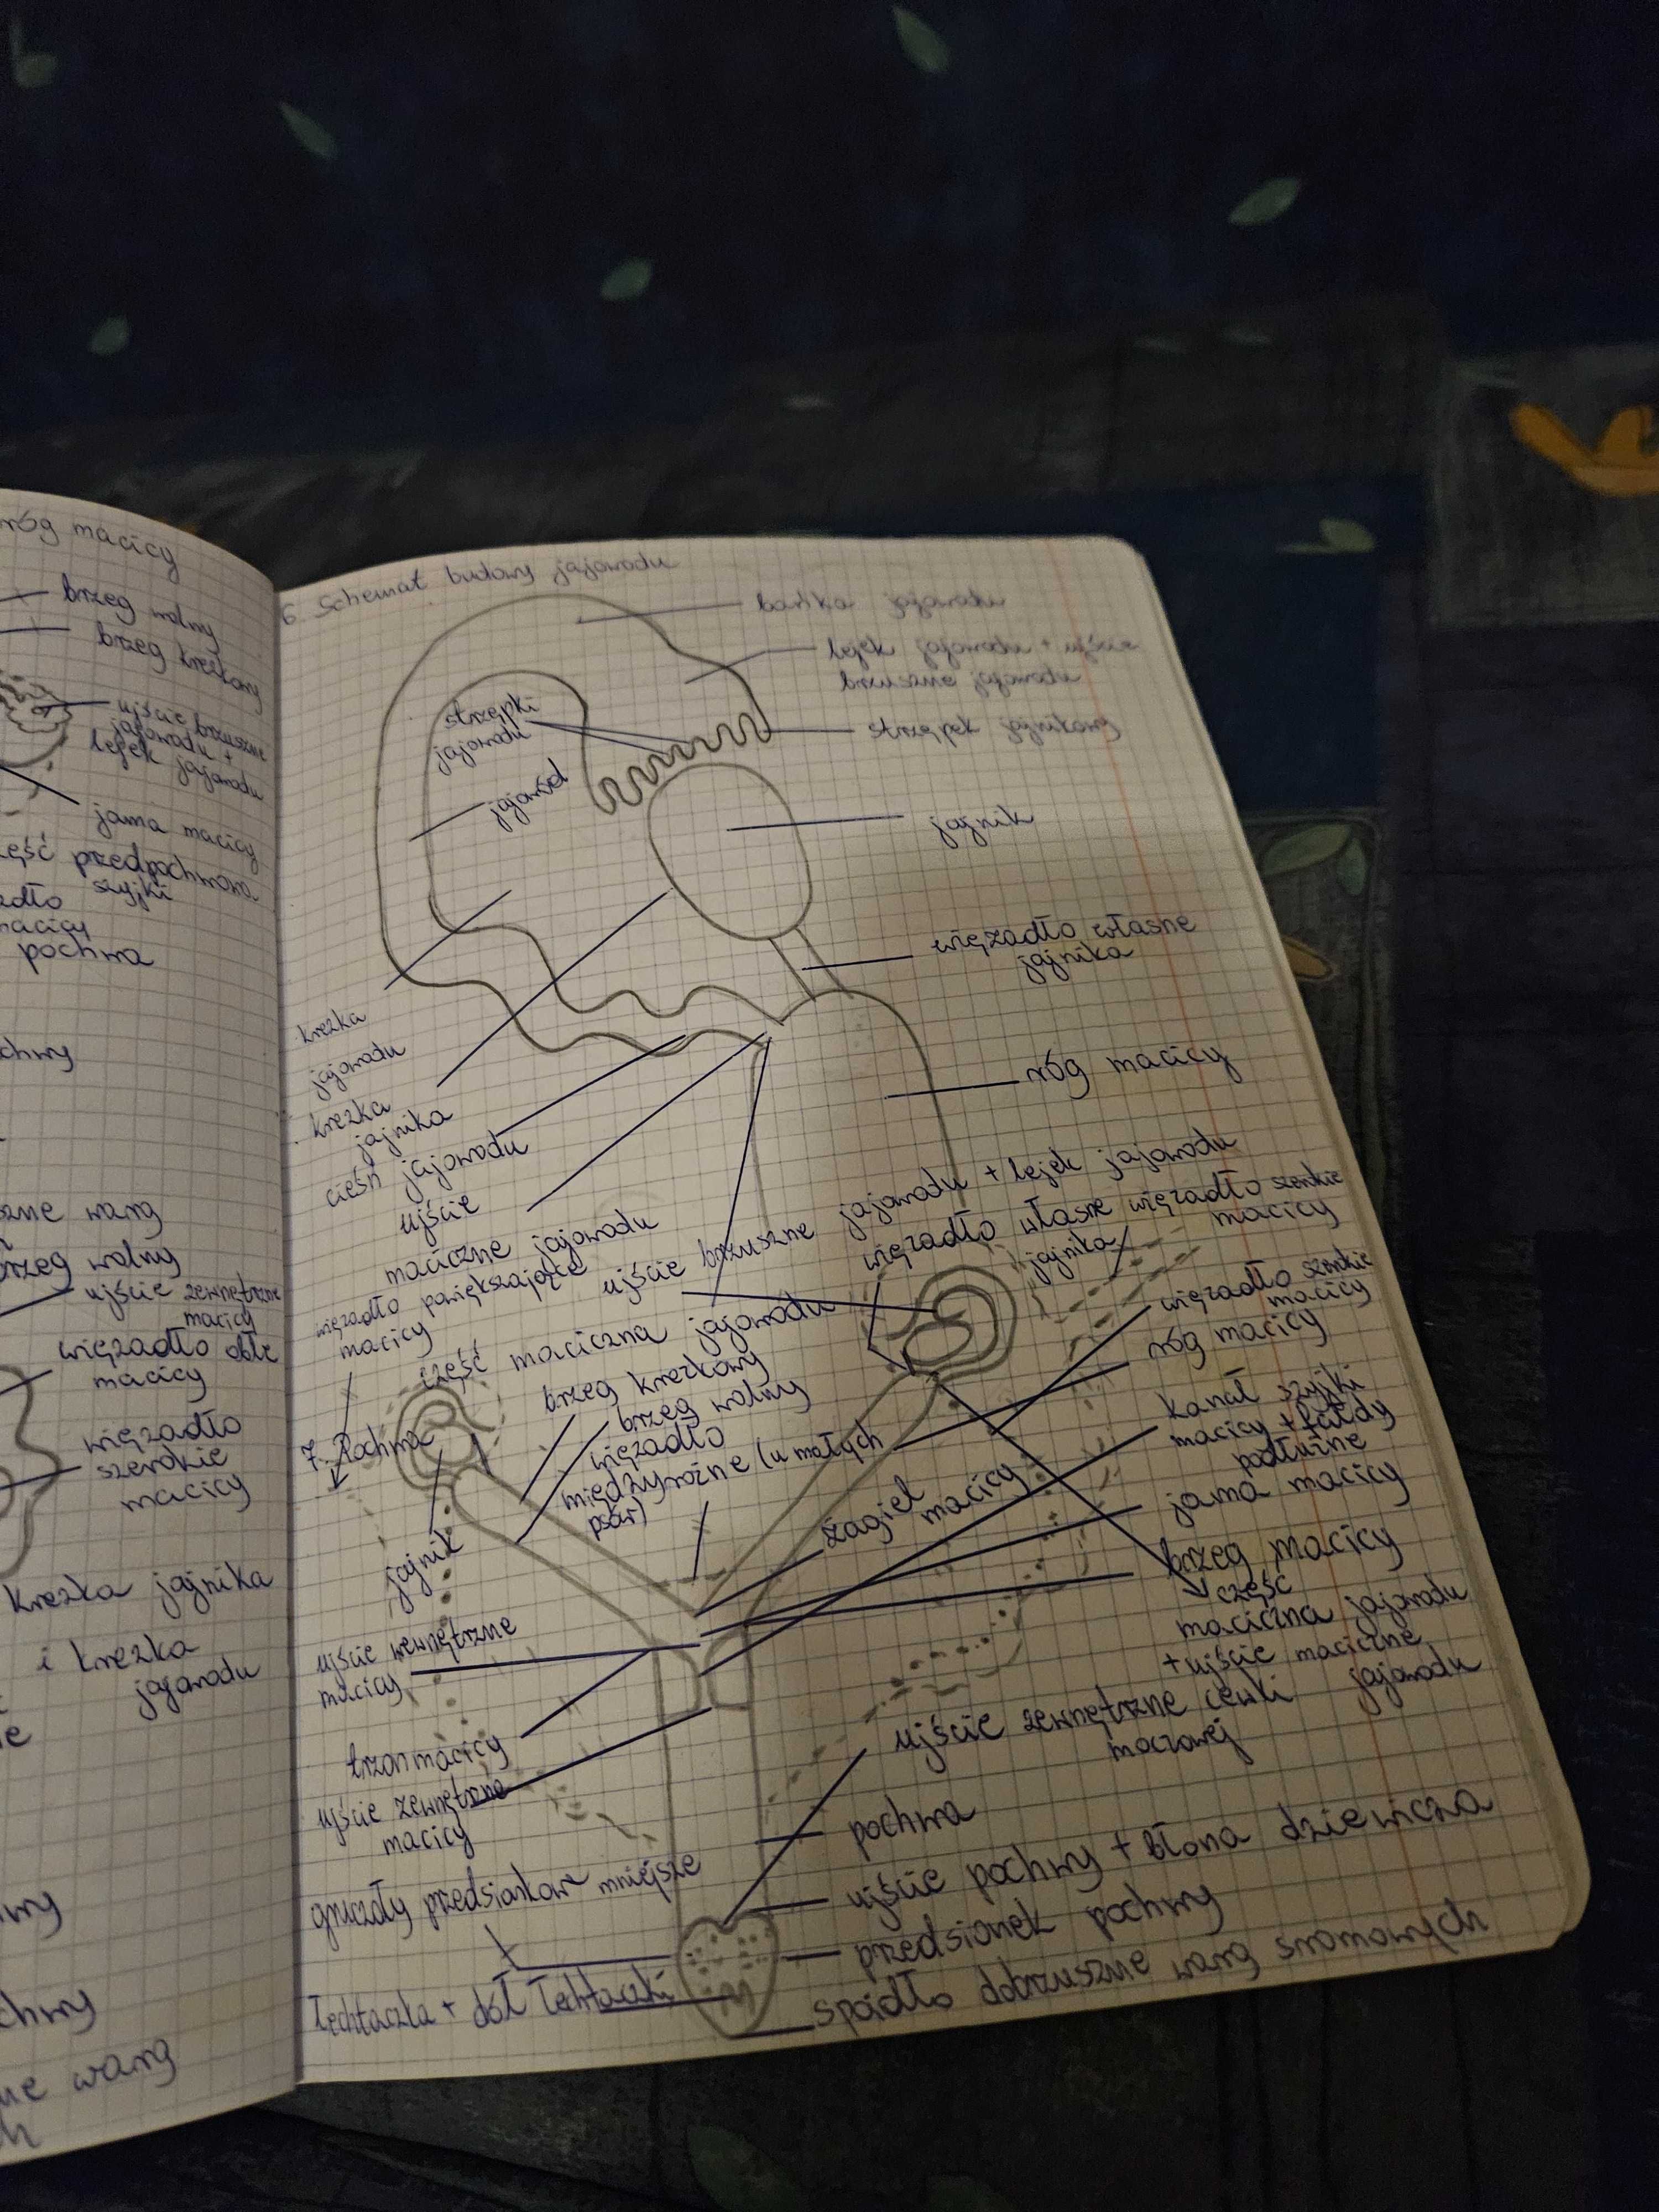 róg macicy
brzeg wolny
brzeg krezkowy
ujście brzuszne
jajowodu +
lejek jajowodu
jama macicy
przedpochwowa
szyjki
macicy
pochwa
wang
brzeg wolny
ujście zewnętrzne
macicy
więzadło obłe
macicy
więzadło
szerokie
macicy
krezka jajnika
i krezka
jajowodu
wang
6 Schemat budowy jajowodu
bańka jajowodu
lejek jajowodu + ujście
brzuszne jajowodu
strzępki
jajowodu
strzępek jajnikowy
jajowód
jajnik
więzadło własne
jajnika
krezka
jajowodu
krezka
jajnika
cieśń jajowodu
ujście
maciczne jajowodu
róg macicy
ujście brzuszne jajowodu + lejek jajowodu
więzadło powiększające
macicy
część maciczna jajowodu
więzadło własne
jajnika
więzadło szerokie
macicy
więzadło szerokie
macicy
róg macicy
7. Pochwa
brzeg krezkowy
brzeg wolny
więzadło
międzyrożne (u małych
psów)
kanał szyjki
macicy + fałdy
podłużne
żagiel
macicy
jama macicy
jajnik
brzeg macicy
część
maciczna jajowodu
+ ujście maciczne
jajowodu
ujście wewnętrzne
macicy
trzon macicy
ujście zewnętrzne
macicy
ujście zewnętrzne cewki
moczowej
pochwa
gruczoły przedsionkow mniejsze
ujście pochwy + błona dziewicza
przedsionek pochwy
łechtaczka + dół łechtaczki
spoidło dobrzuszne warg sromowych